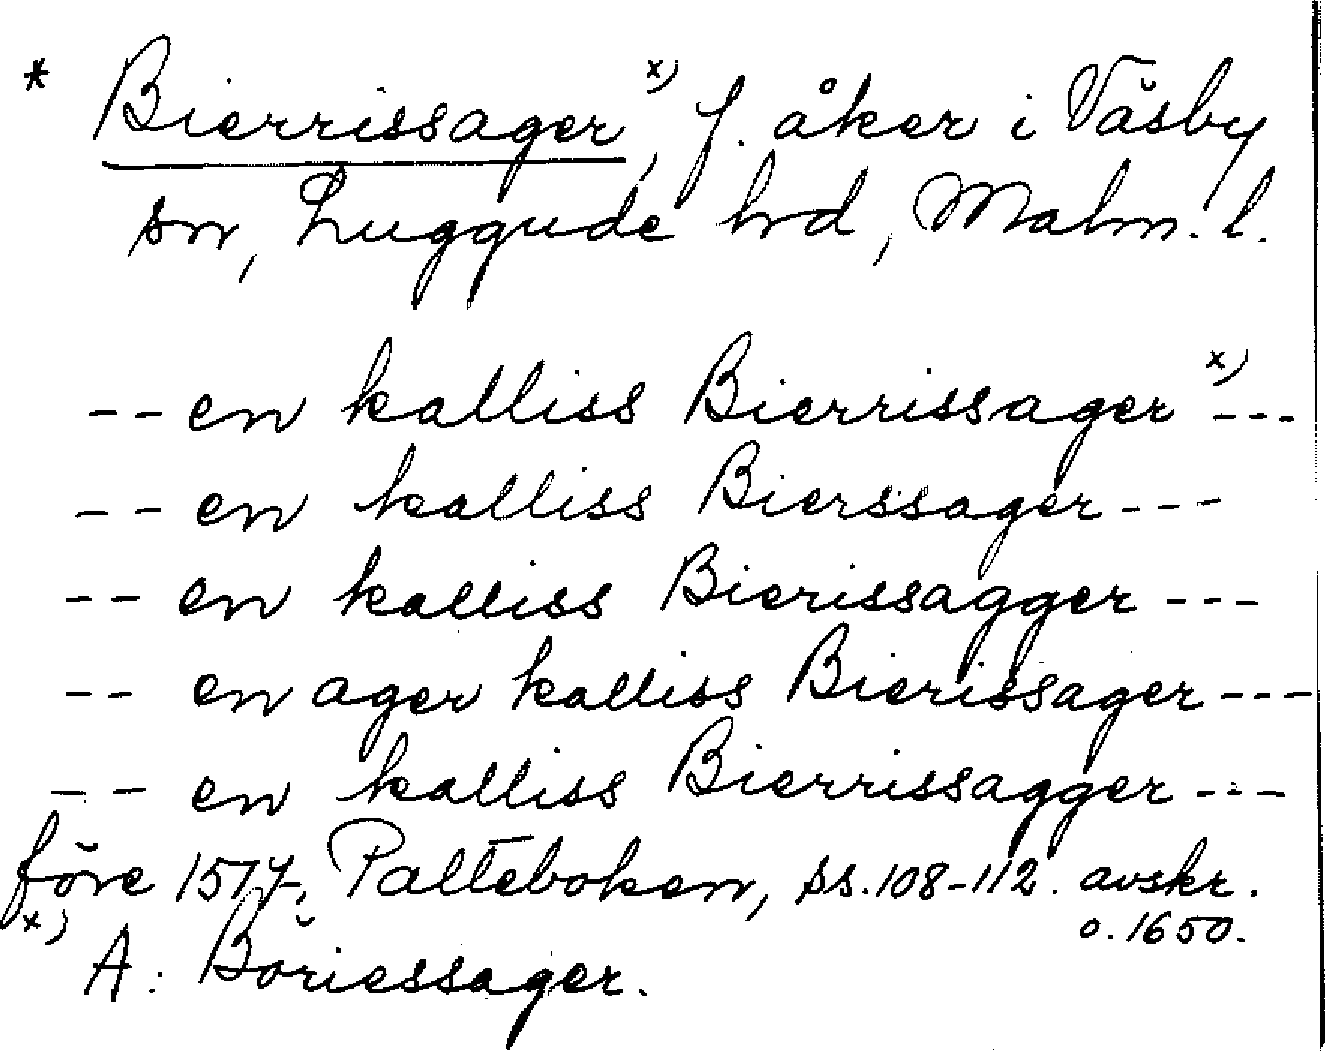 * Bierrissager x), f. åker i Väsby
sn, Luggude hrd, Malm. l.
-- en kalliss Bierrissager x) ---
-- en kalliss Bierssager ---
-- en kalliss Bierissagger ---
-- en ager kalliss Bierissager ---
-- en kalliss Bierrissagger ---
före 1517, Palteboken, ss. 108-112. avskr.
o. 1650.
x) A: Böriessager.